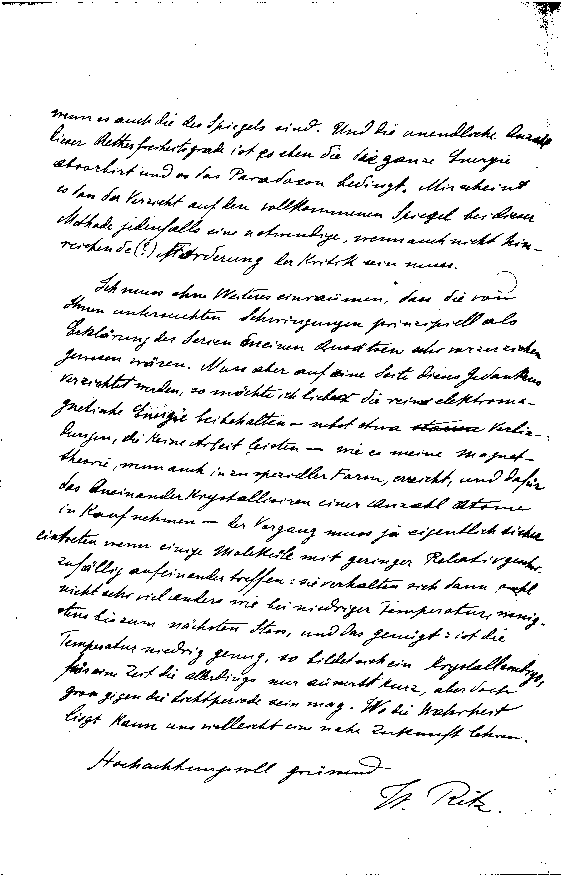 wenn es auch die des Spiegels sind. Und die unendliche Anzahl
dieser Aetherfreiheitsgrade ist es eben die die ganze Energie
absorbirt und so das Paradoxon bedingt. Mir scheint
so dass der Verzicht auf den vollkommenen Spiegel bei dieser
Methode jedenfalls eine notwendige, wenn auch nicht hin-
reichende (!) Forderung der Kritik sein muss.
Ich muss ohne Weiteres einräumen, dass die von
Ihnen untersuchten Schwingungen prinzipiell als
Erklärung der Serien meinen Ansätzen sehr vorzuziehen
gewesen wären. Muss aber auf eine Seite dieses Gedankens
verzichtet werden, so möchte ich liebst die reine elektroma-
gnetische Energie beibehalten – nebst etwa starre Verbin-
dungen, die keine Arbeit leisten – wie es meine Magnet-
theorie, wenn auch in zu spezieller Form, erreicht, und dafür
das Aneinander Krystallisiren einer Anzahl Atome
in Kauf nehmen – der Vorgang muss ja eigentlich sicher
eintreten wenn einige Moleküle mit geringer Relativgeschw.
zufällig aufeinander treffen: sie verhalten sich dann wohl
nicht sehr viel anders wie bei niedriger Temperatur, wenig-
stens bis zum nächsten Stoss, und das genügt: ist die
Temperatur niedrig genug, so bildet sich ein Krystallembryo,
für eine Zeit die allerdings nur äusserst kurz, aber doch
gross gegen die Lichtperiode sein mag. Wo die Wahrheit
liegt kann uns vielleicht eine nahe Zukunft lehren.
Hochachtungsvoll grüssend
W. Ritz.